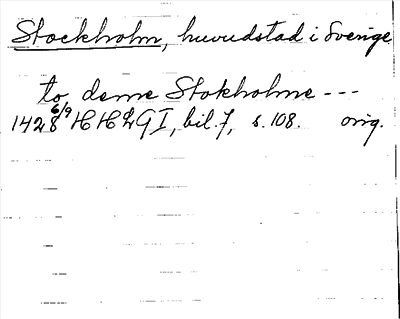 Stockholm, huvudstad i Sverige
to deme Stokholme ---
1428 6/9 HH&G I, bil. 7, s. 108. orig.